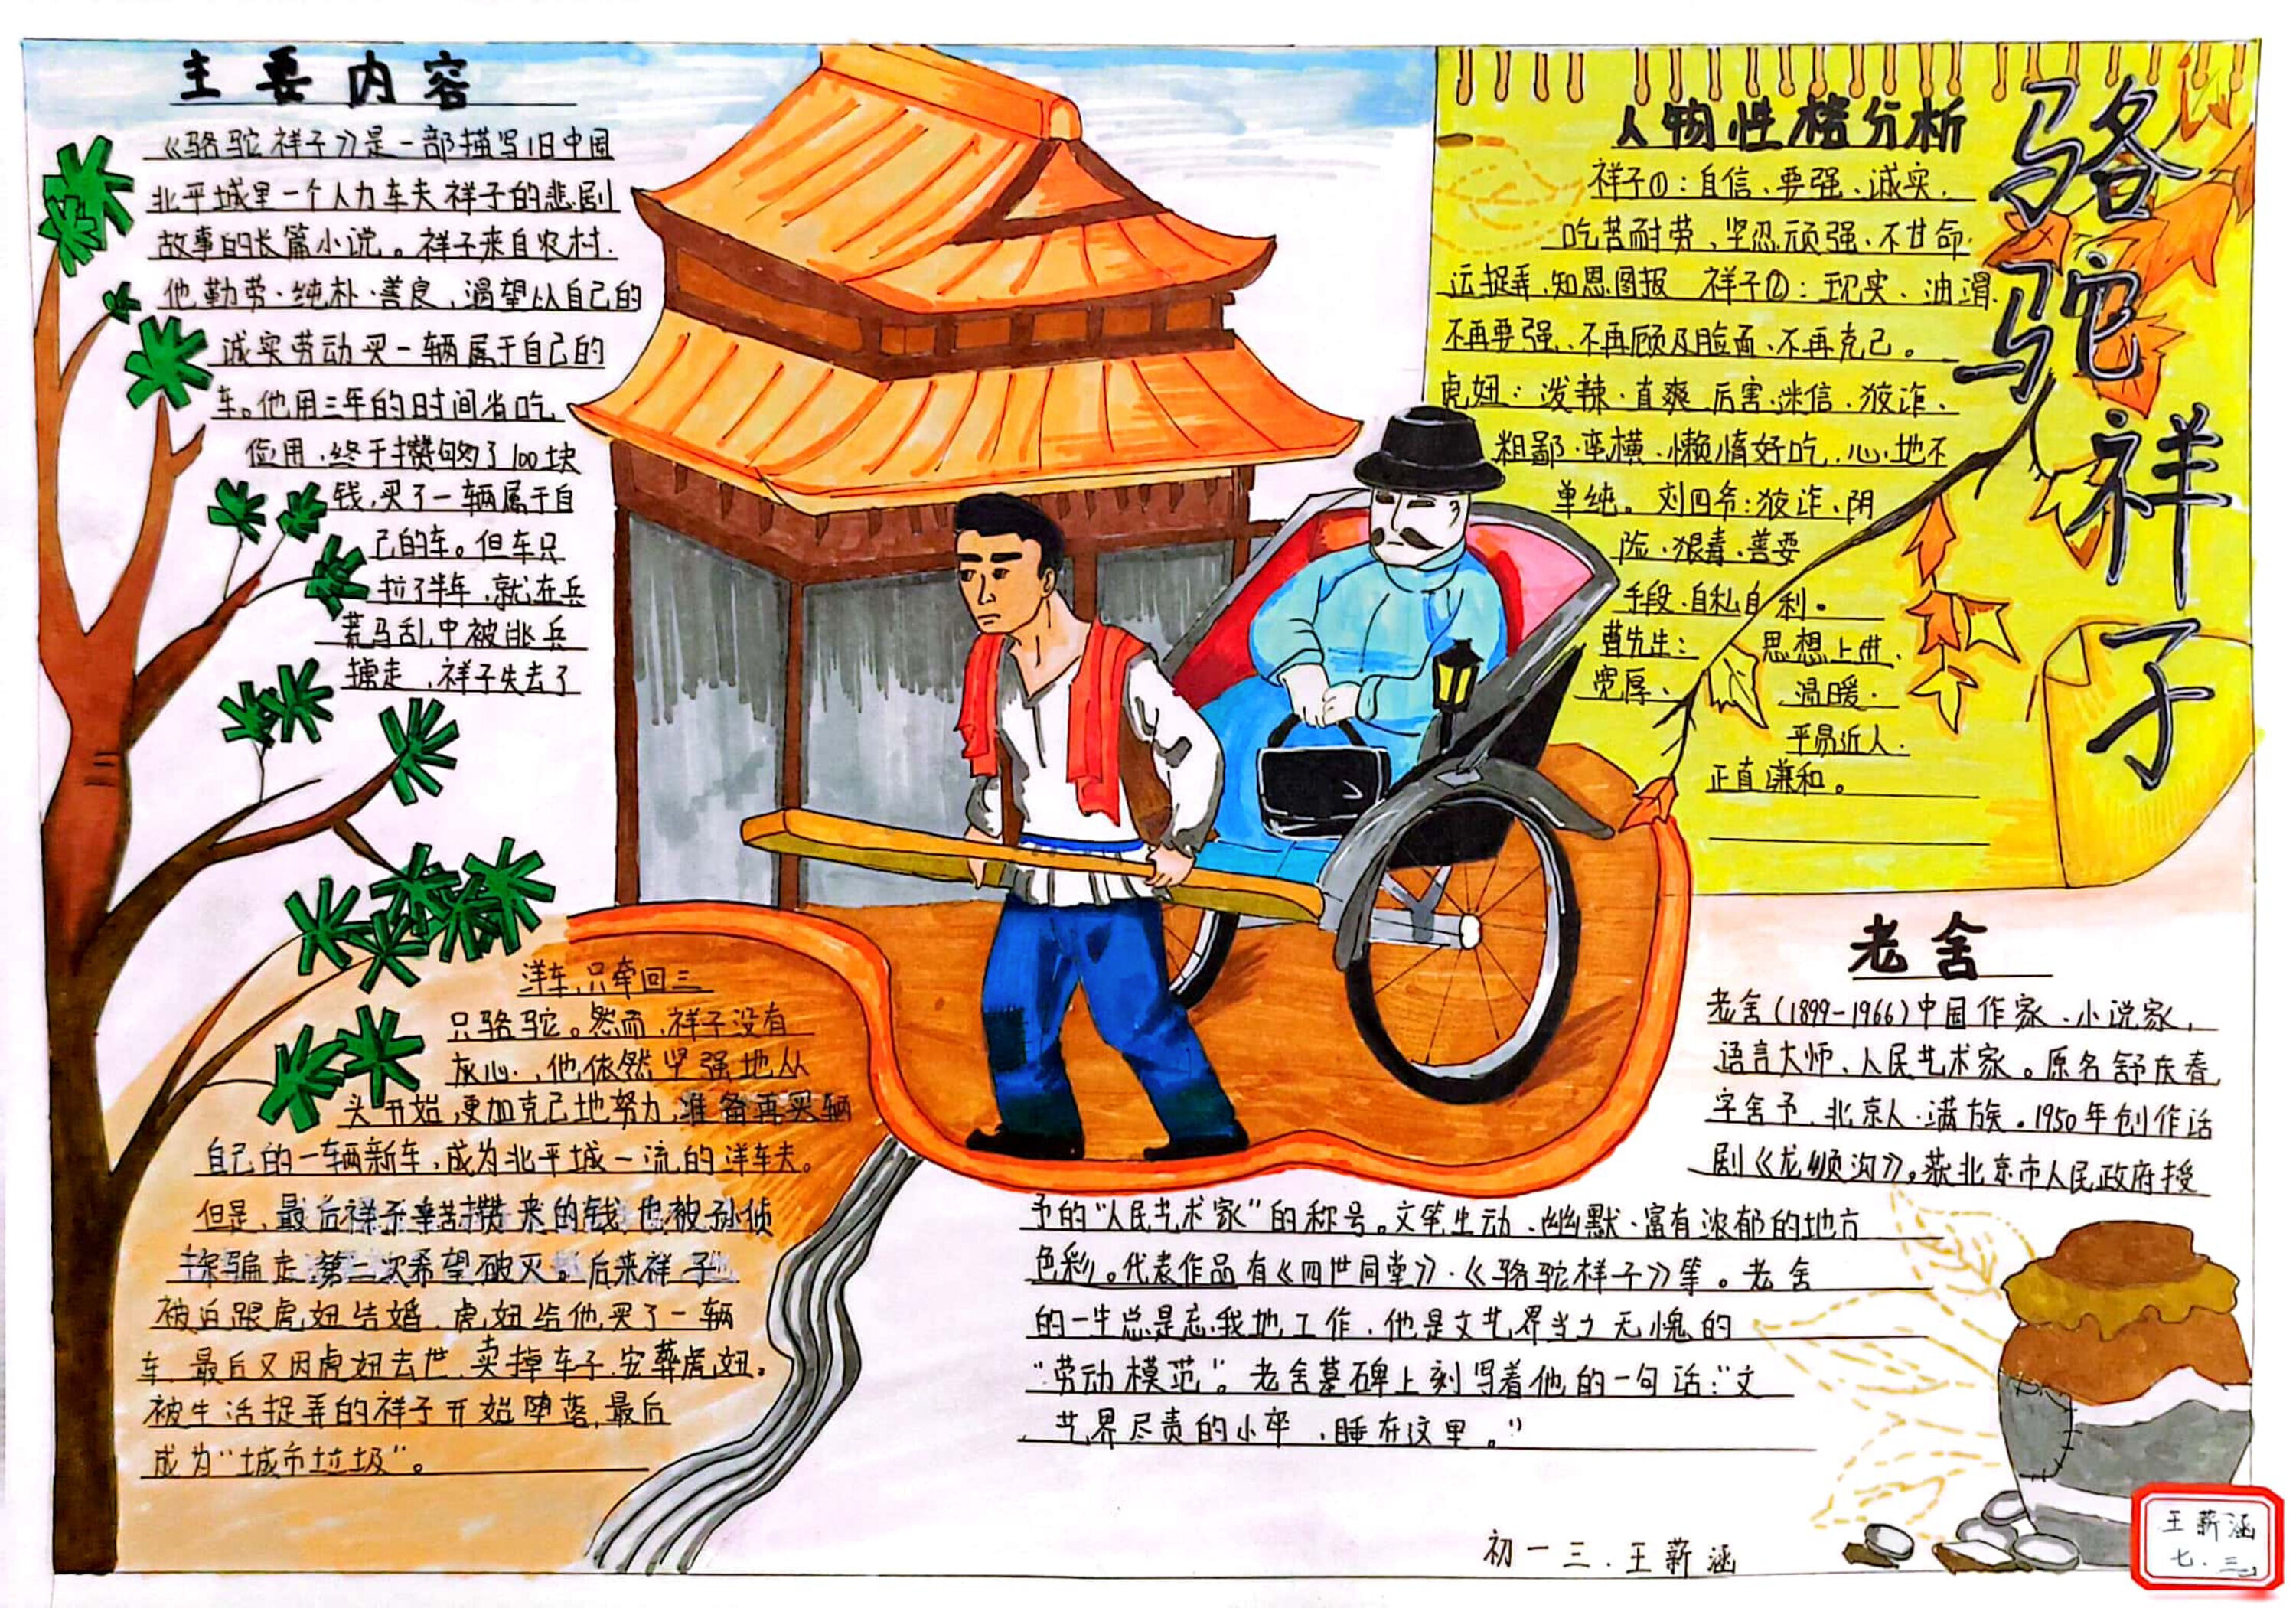 主要内容
《骆驼祥子》是一部描写旧中国
北平城里一个人力车夫祥子的悲剧
故事的长篇小说。祥子来自农村.
他勤劳·纯朴·善良,渴望以自己的
诚实劳动买一辆属于自己的
车。他用三年的时间省吃
俭用,终于攒够了100块
钱,买了一辆属于自
己的车。但车只
拉了半年,就在兵
荒马乱中被逃兵
掳走,祥子失去了
洋车,只牵回三
只骆驼。然而,祥子没有
灰心,他依然坚强地从
头开始,更加克己地努力,准备再买辆
自己的一辆新车,成为北平城一流的洋车夫。
但是,最后祥子辛苦攒来的钱也被孙侦
探骗走,第二次希望破灭。后来祥子
被迫跟虎妞结婚,虎妞给他买了一辆
车,最后又因虎妞去世,卖掉车子,安葬虎妞。
被生活捉弄的祥子开始堕落,最后
成为“城市垃圾”。
人物性格分析
祥子①:自信、要强、诚实、
吃苦耐劳、坚忍顽强、不甘命
运捉弄,知恩图报 祥子②:现实、油滑、
不再要强、不再顾及脸面、不再克己。
虎妞:泼辣·直爽 厉害·迷信·狡诈、
粗鄙·蛮横·懒惰好吃,心地不
单纯。刘四爷:狡诈、阴
险·狠毒·善耍
手段·自私自利。
曹先生: 思想上进、
宽厚、 温暖·
平易近人·
正直谦和。
骆驼祥子
老舍
老舍(1899-1966)中国作家、小说家,
语言大师、人民艺术家。原名舒庆春,
字舍予,北京人·满族。1950年创作话
剧《龙须沟》。获北京市人民政府授
予的“人民艺术家”的称号。文笔生动、幽默·富有浓郁的地方
色彩。代表作品有《四世同堂》·《骆驼祥子》等。老舍
的一生总是忘我地工作,他是文艺界当之无愧的
“劳动模范”。老舍墓碑上刻写着他的一句话:“文
艺界尽责的小卒,睡在这里。”
初一三.王薪涵
王薪涵
七.三